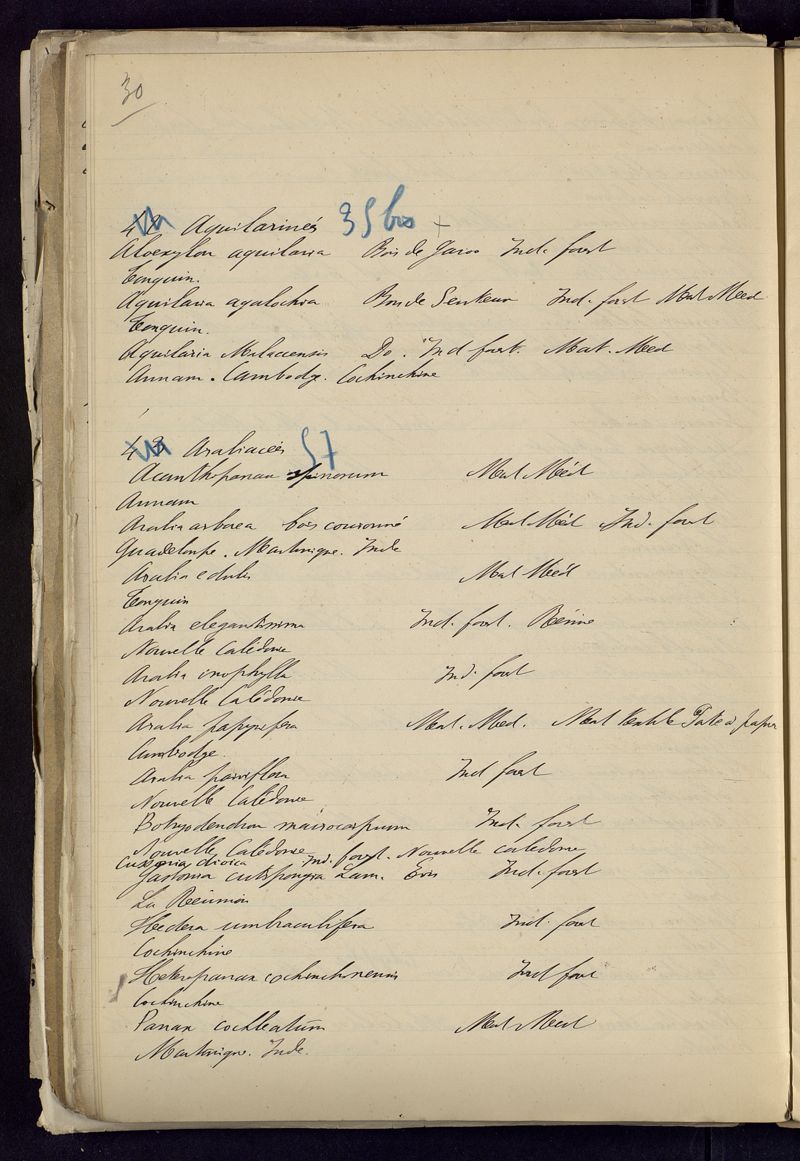 30
42 Aquilarinées 35 bis +
Aloexylon aquilaria Bois de Garoo Ind. forest
Tonquin.
Aquilaria agalochia Bois de Senteur Ind. forest Mat Med
Tonquin.
Aquilaria Malaccensis Do. Ind forest. Mat. Med
Annam. Cambodge. Cochinchine
43 Araliacées 57
Acanthopanax spinosum Mat Méd
Annam
Aralia arborea bois couronné Mat Méd Ind. forest
Guadeloupe. Martinique. Inde
Aralia edulis Mat Méd
Tonquin
Aralia elegantissima Ind. forest. Résine
Nouvelle Calédonie
Aralia inophylla Ind. forest
Nouvelle Calédonie
Aralia papyrifera Mat. Med. Mat textile Pate à papier
Cambodge.
Aralia parviflora Ind forest
Nouvelle Calédonie
Botryodendron macrocarpum Ind. forest
Nouvelle Calédonie
Cussonia dioica Ind. forest. Nouvelle calédonie
Gastonia cutispongia Lam. Ind. forest
La Réunion
Hedera umbraculifera Ind forest
Cochinchine
Heteropanax cochinchinensis Ind forest
Cochinchine
Panax cochleatum Mat Med
Martinique. Inde.